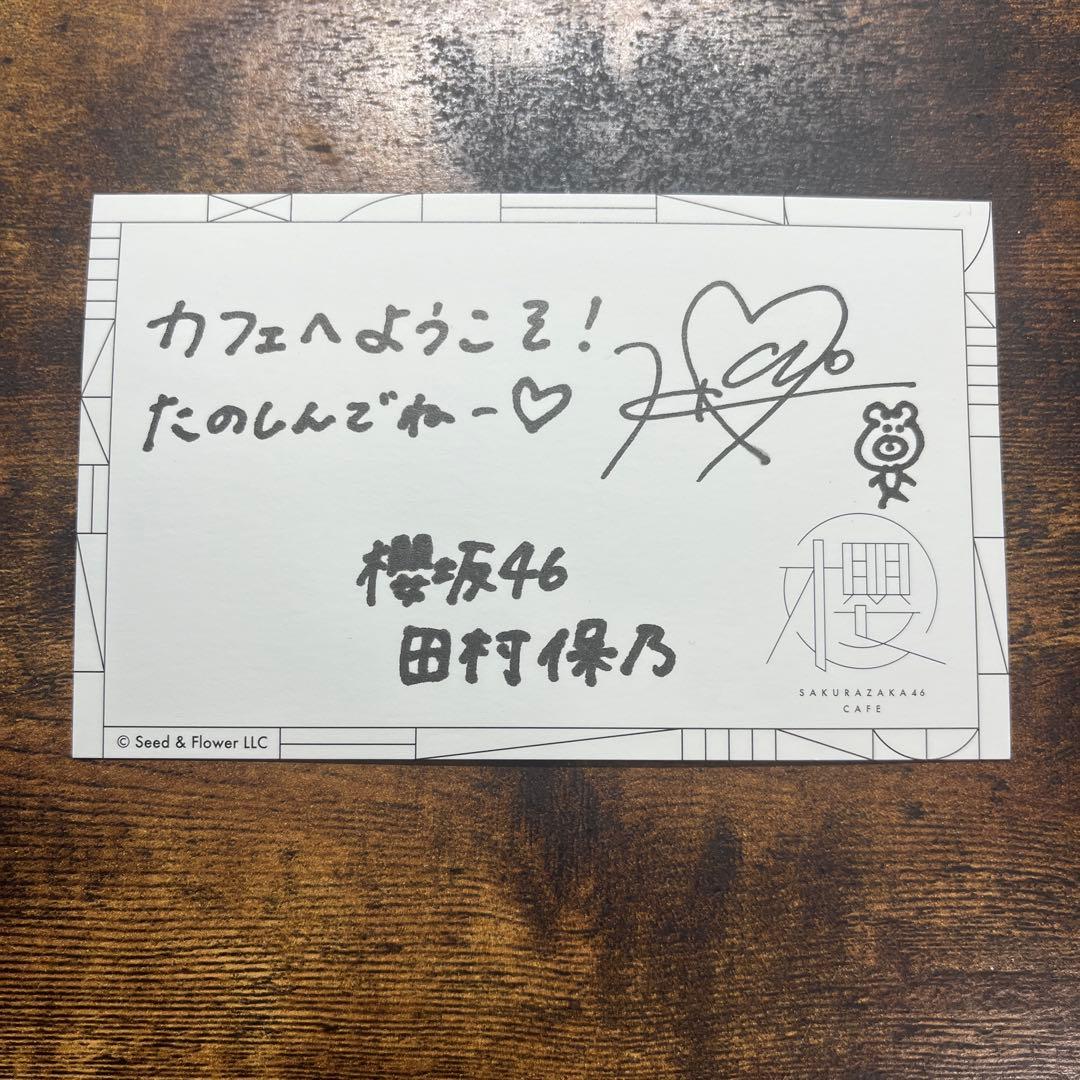 カフェへようこそ!
たのしんでねー♡
櫻坂46
田村保乃
櫻
SAKURAZAKA46
CAFE
© Seed & Flower LLC